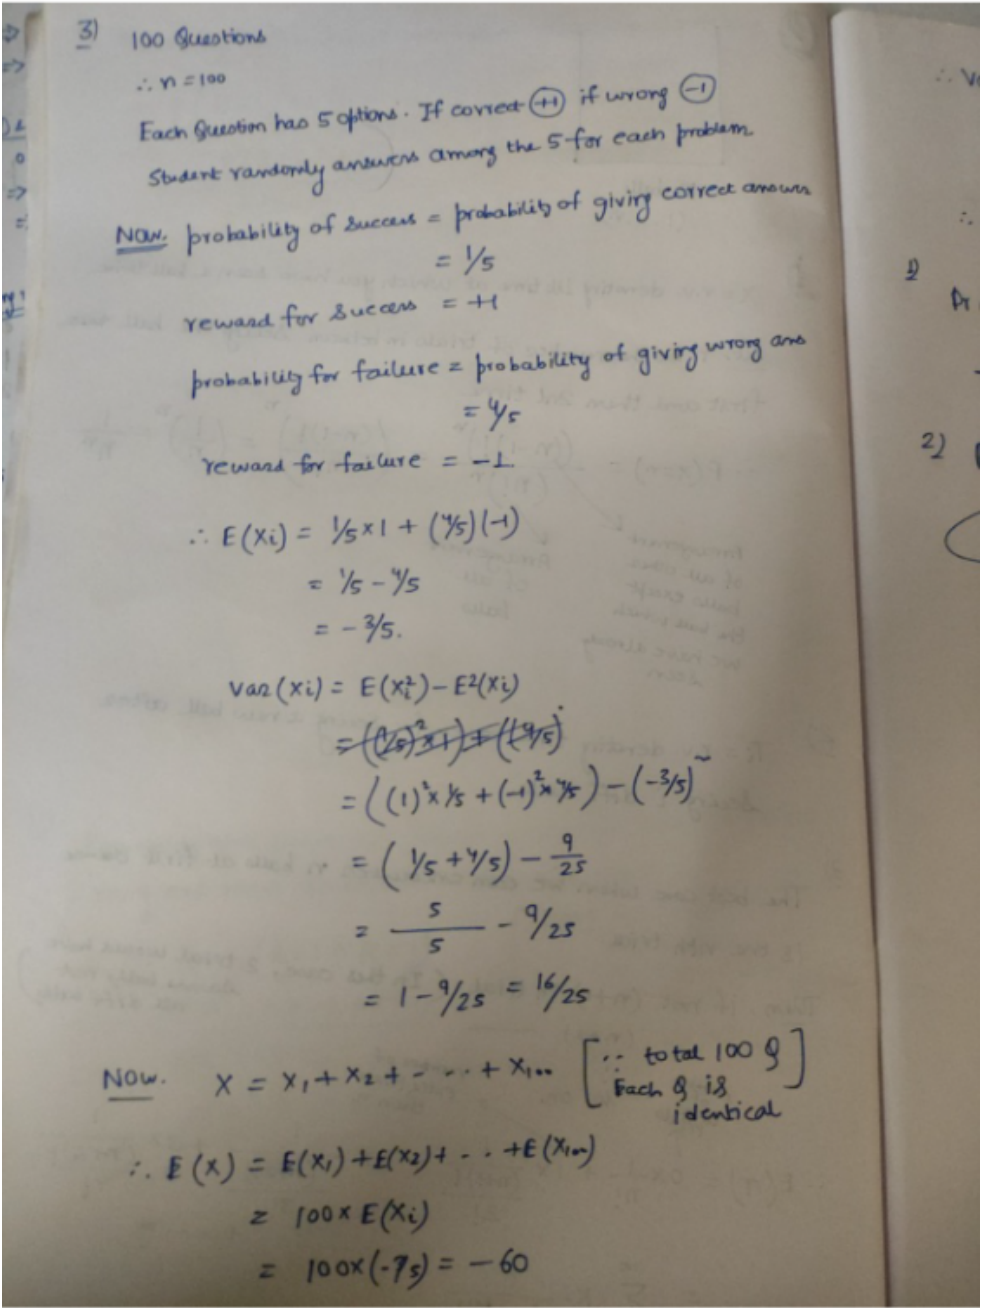 3) 100 Questions
∴ n = 100
Each Question has 5 options. If correct (+1) if wrong (-1)
Student randomly answers among the 5 for each problem
Now. probability of success = probability of giving correct answer
= 1/5
reward for success = +1
probability for failure = probability of giving wrong ans
= 4/5
reward for failure = -1
∴ E(Xi) = 1/5 × 1 + (4/5)(-1)
= 1/5 - 4/5
= - 3/5.
var(Xi) = E(Xi²) - E²(Xi)
= ((1)² × 1/5 + (-1)² × 4/5) - (-3/5)²
= (1/5 + 4/5) - 9/25
= 5/5 - 9/25
= 1 - 9/25 = 16/25
Now. X = X₁ + X₂ + - - - + X₁₀₀ [∵ total 100 Q
Each Q is
identical]
∴ E(X) = E(X₁) + E(X₂) + - - + E(X₁₀₀)
= 100 × E(Xi)
= 100 × (-3/5) = -60
∴
∴
1)
2)